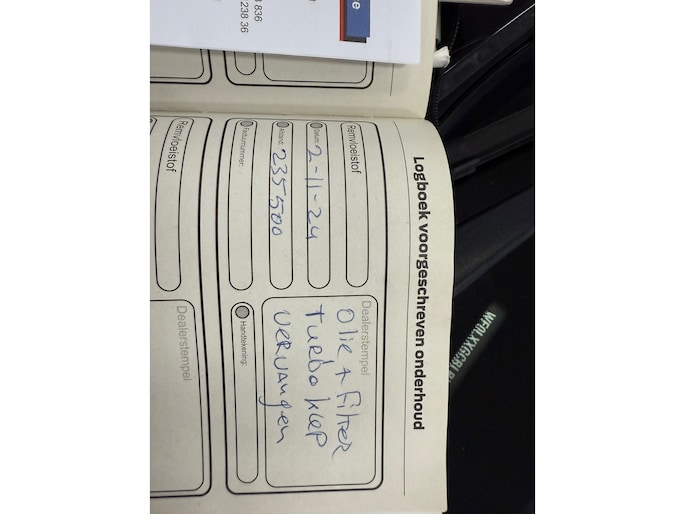 Logboek voorgeschreven onderhoud
Remvloeistof
Datum: 2-11-24
Afstand: 235500
Factuurnummer:
Dealerstempel
Olie + Filter
turbo klep
vervangen
Handtekening:
Remvloeistof
Dealerstempel
836
238 36